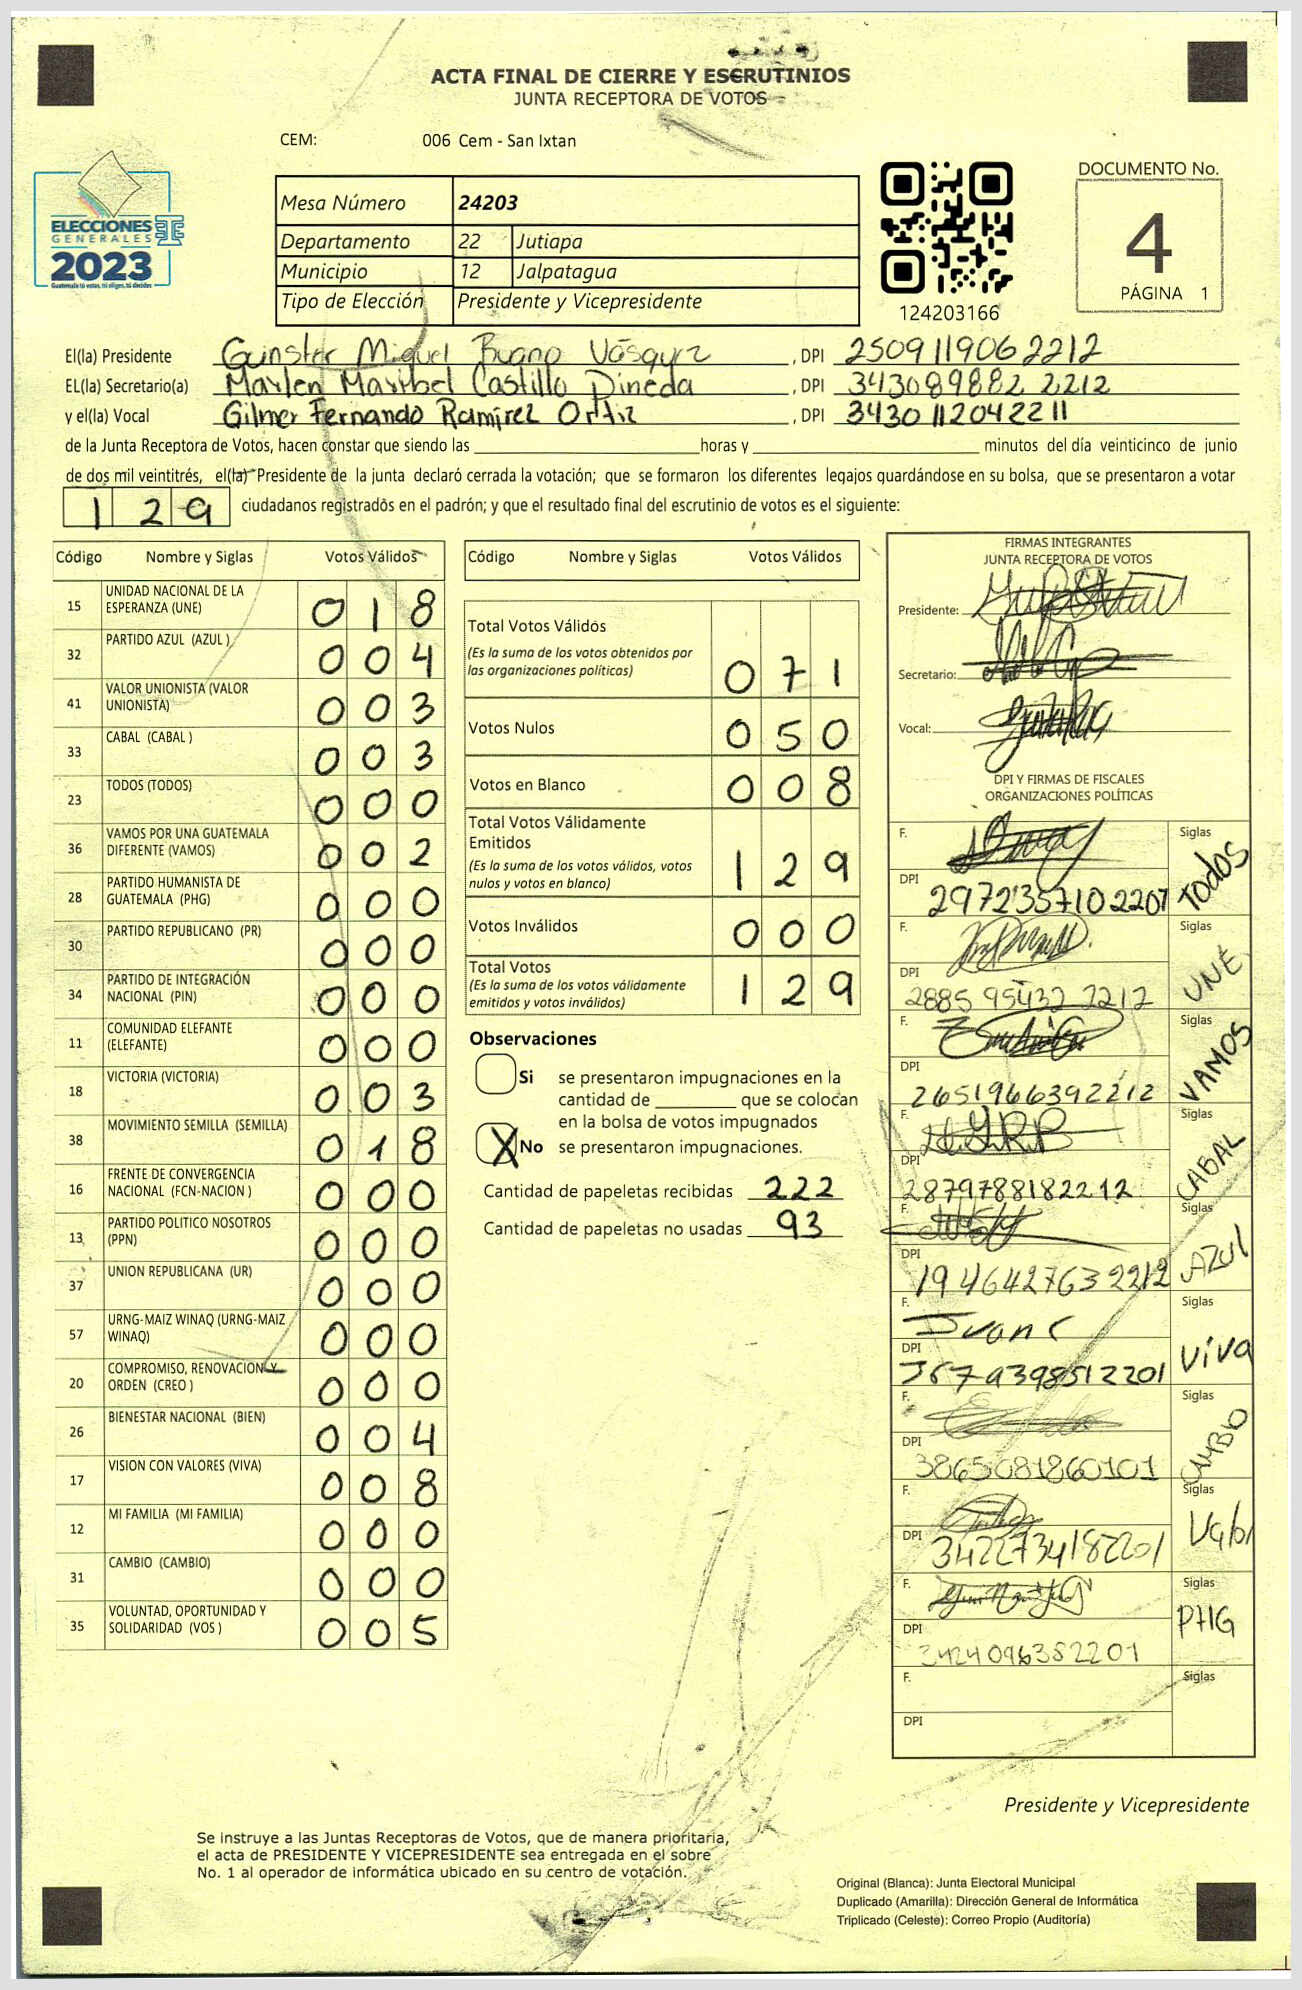 ACTA FINAL DE CIERRE Y ESCRUTINIOS
JUNTA RECEPTORA DE VOTOS
CEM: 006 Cem - San Ixtan
ELECCIONES
GENERALES
2023
Guatemala tú votas, tú eliges, tú decides
Mesa Número 24203
Departamento 22 Jutiapa
Municipio 12 Jalpatagua
Tipo de Elección Presidente y Vicepresidente
124203166
DOCUMENTO No.
4
PÁGINA 1
El(la) Presidente Miguel Vásquez , DPI 2509119062212
EL(la) Secretario(a) Marlen Maribel Castillo Pineda , DPI 343089882 2212
y el(la) Vocal Gilmer Fernando Ramirez Ortiz , DPI 3430112042211
de la Junta Receptora de Votos, hacen constar que siendo las horas y minutos del día veinticinco de junio
de dos mil veintitrés, el(la) Presidente de la junta declaró cerrada la votación; que se formaron los diferentes legajos guardándose en su bolsa, que se presentaron a votar
129 ciudadanos registrados en el padrón; y que el resultado final del escrutinio de votos es el siguiente:
Código Nombre y Siglas Votos Válidos
15 UNIDAD NACIONAL DE LA ESPERANZA (UNE) 018
32 PARTIDO AZUL (AZUL ) 004
41 VALOR UNIONISTA (VALOR UNIONISTA) 003
33 CABAL (CABAL ) 003
23 TODOS (TODOS) 000
36 VAMOS POR UNA GUATEMALA DIFERENTE (VAMOS) 002
28 PARTIDO HUMANISTA DE GUATEMALA (PHG) 000
30 PARTIDO REPUBLICANO (PR) 000
34 PARTIDO DE INTEGRACIÓN NACIONAL (PIN) 000
11 COMUNIDAD ELEFANTE (ELEFANTE) 000
18 VICTORIA (VICTORIA) 003
38 MOVIMIENTO SEMILLA (SEMILLA) 018
16 FRENTE DE CONVERGENCIA NACIONAL (FCN-NACION ) 000
13 PARTIDO POLITICO NOSOTROS (PPN) 000
37 UNION REPUBLICANA (UR) 000
57 URNG-MAIZ WINAQ (URNG-MAIZ WINAQ) 000
20 COMPROMISO, RENOVACION Y ORDEN (CREO ) 000
26 BIENESTAR NACIONAL (BIEN) 004
17 VISION CON VALORES (VIVA) 008
12 MI FAMILIA (MI FAMILIA) 000
31 CAMBIO (CAMBIO) 000
35 VOLUNTAD, OPORTUNIDAD Y SOLIDARIDAD (VOS ) 005
Código Nombre y Siglas Votos Válidos
Total Votos Válidos 071
(Es la suma de los votos obtenidos por
las organizaciones políticas)
Votos Nulos 050
Votos en Blanco 008
Total Votos Válidamente
Emitidos 129
(Es la suma de los votos válidos, votos
nulos y votos en blanco)
Votos Inválidos 000
Total Votos 129
(Es la suma de los votos válidamente
emitidos y votos inválidos)
Observaciones
Si se presentaron impugnaciones en la
cantidad de que se colocan
en la bolsa de votos impugnados
X No se presentaron impugnaciones.
Cantidad de papeletas recibidas 222
Cantidad de papeletas no usadas 93
FIRMAS INTEGRANTES
JUNTA RECEPTORA DE VOTOS
Presidente:
Secretario:
Vocal:
DPI Y FIRMAS DE FISCALES
ORGANIZACIONES POLÍTICAS
F. Siglas TODOS
DPI 2972357102207
F. Siglas UNE
DPI 2885 95432 2212
F. Siglas VAMOS
DPI 2651966392212
F. Siglas CABAL
DPI 2879788182212
F. Siglas AZUL
DPI 1946427632212
F. Siglas VIVA
DPI
F. Siglas CAMBIO
DPI 3865081860101
F. Siglas Valor
DPI 3422734182201
F. Siglas PHG
DPI 3424096352201
F. Siglas
DPI
Presidente y Vicepresidente
Se instruye a las Juntas Receptoras de Votos, que de manera prioritaria,
el acta de PRESIDENTE Y VICEPRESIDENTE sea entregada en el sobre
No. 1 al operador de informática ubicado en su centro de votación.
Original (Blanca): Junta Electoral Municipal
Duplicado (Amarilla): Dirección General de Informática
Triplicado (Celeste): Correo Propio (Auditoría)